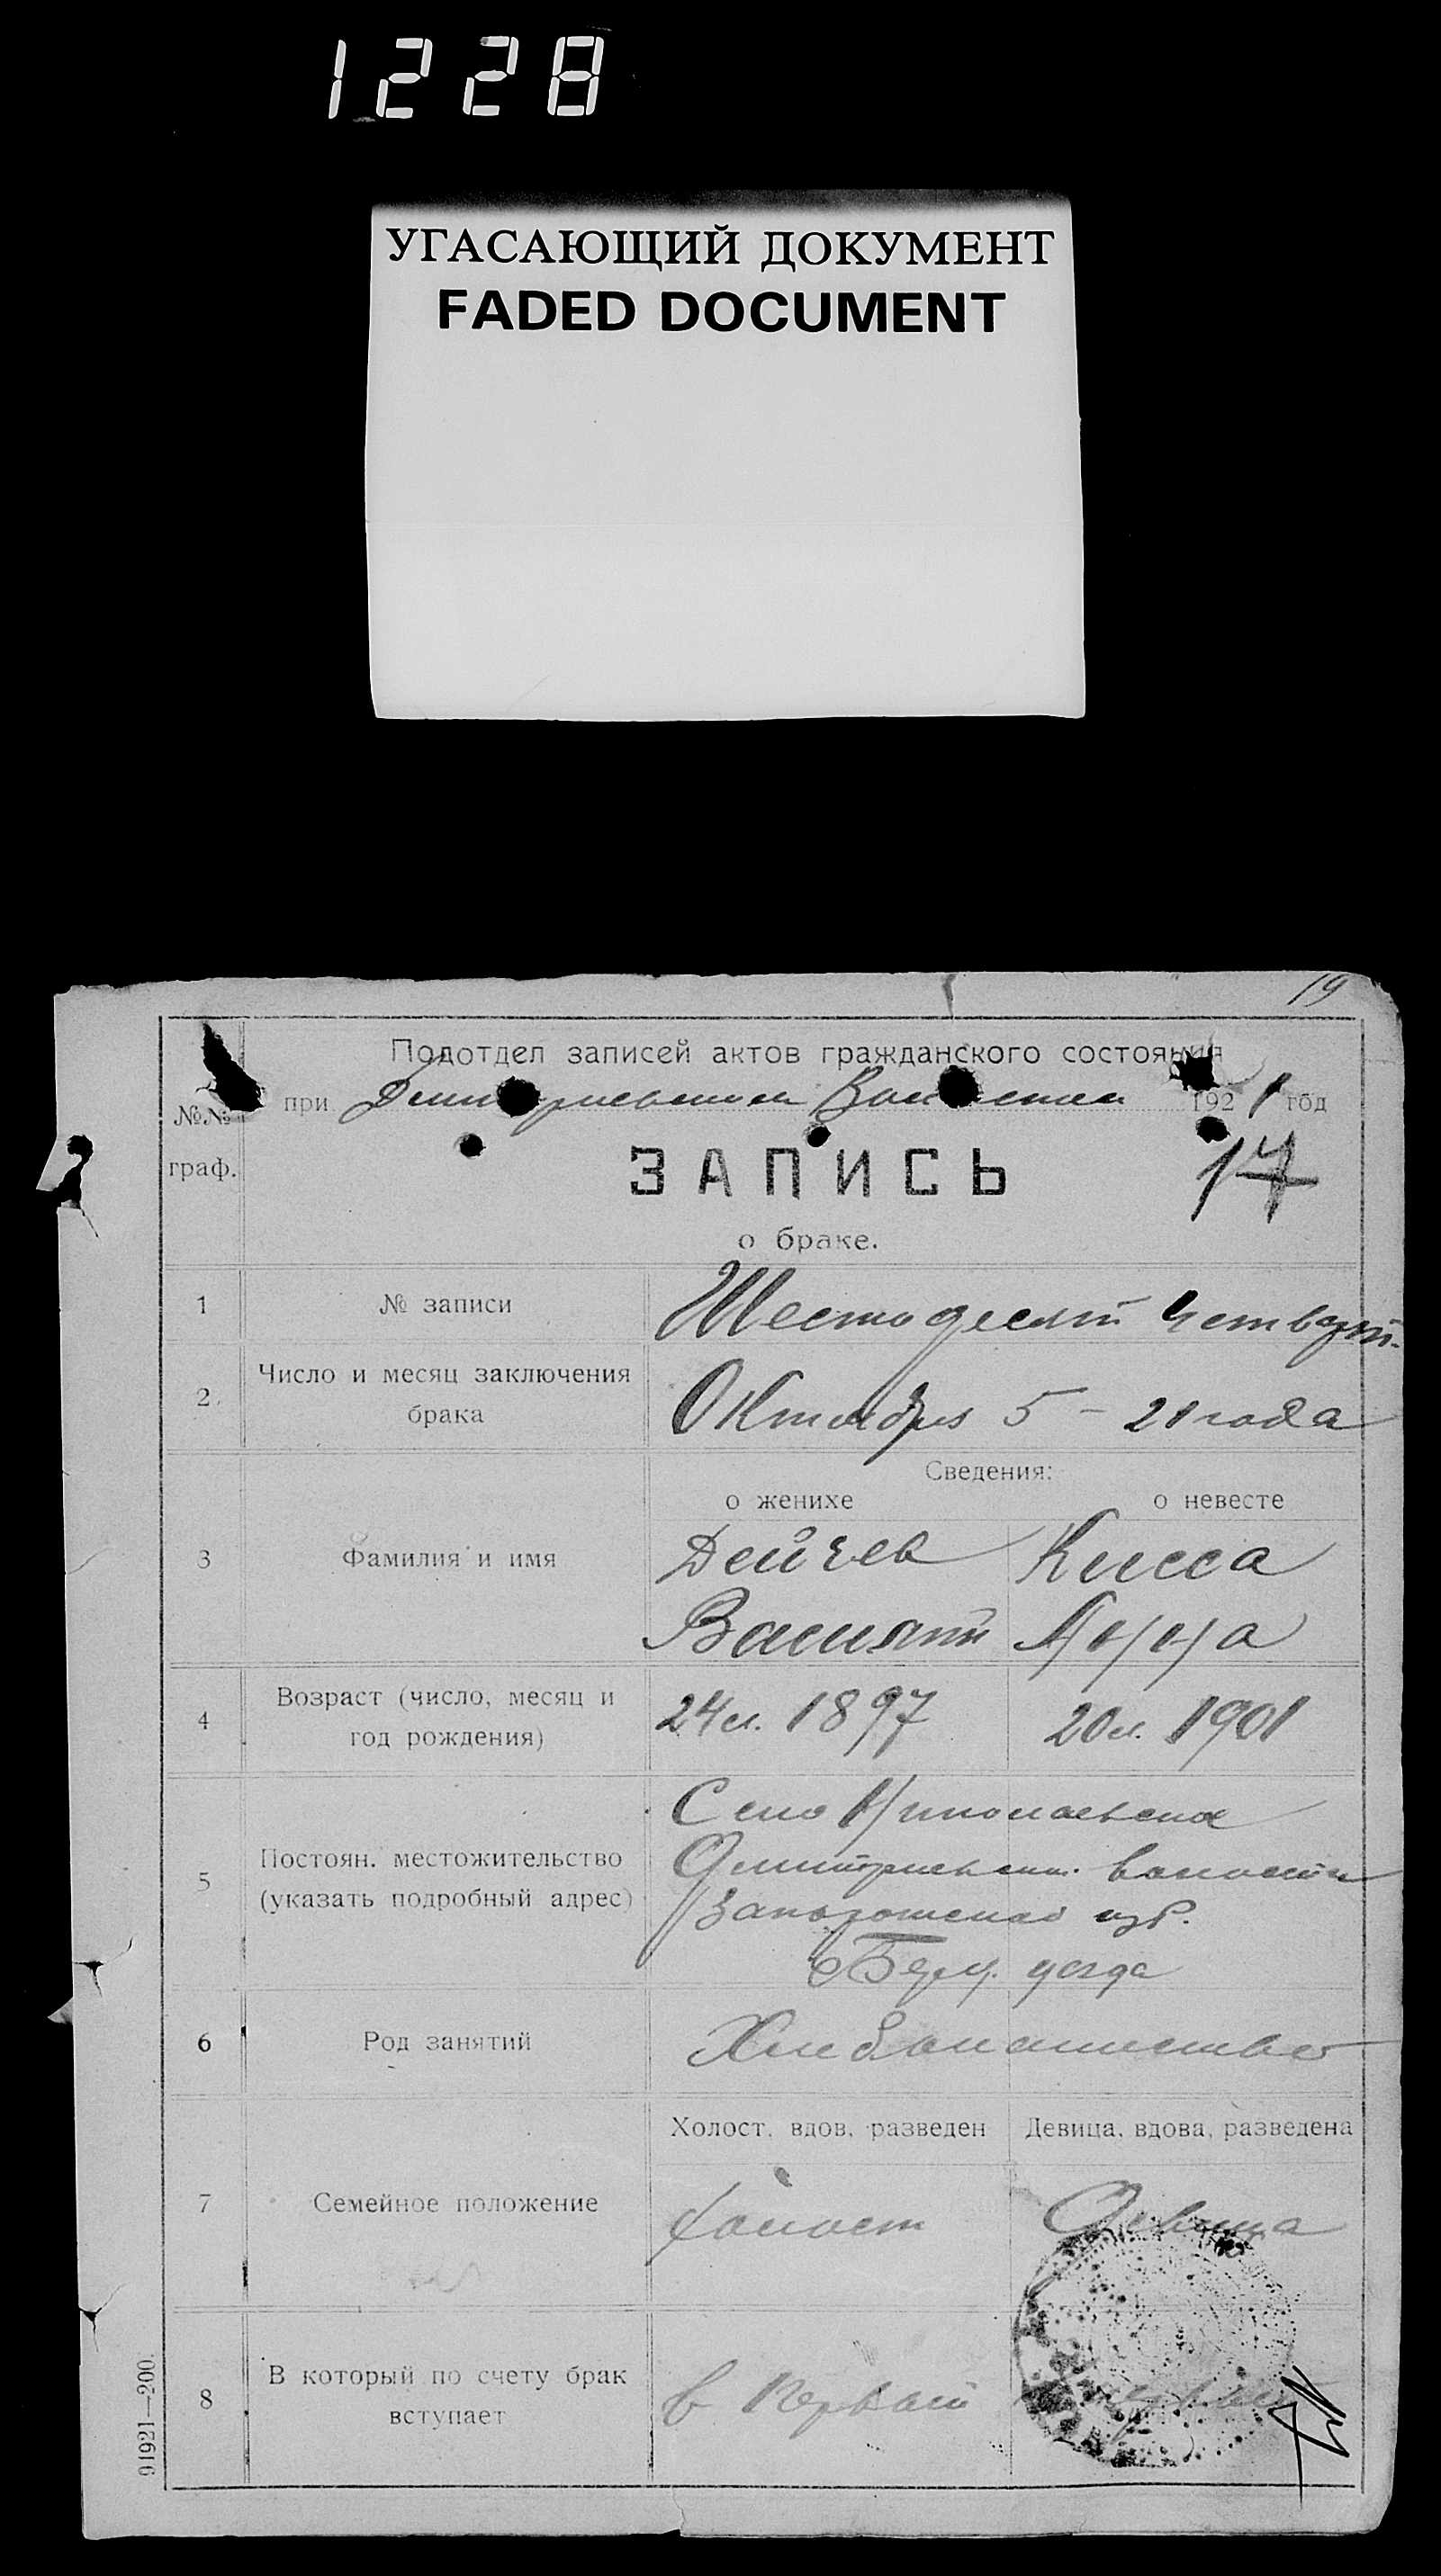 1228
УГАСАЮЩИЙ ДОКУМЕНТ
FADED DOCUMENT
19
Подотдел записей актов гражданского состояния
№№ граф.
при 1921 год
ЗАПИСЬ
17
о браке.
1 № записи Шестодесят Четверт.
2 Число и месяц заключения брака Октября 5 – 21 года
Сведения:
о женихе о невесте
3 Фамилия и имя Дейчев Кисса
Василий Анна
4 Возраст (число, месяц и год рождения) 24 л. 1897 20 л. 1901
5 Постоян. местожительство (указать подробный адрес) Село Николаевское
Дмитриевской волости
Запорожской губ.
Берд. уезда
6 Род занятий Хлебопашество
Холост, вдов, разведен Девица, вдова, разведена
7 Семейное положение холост Девица
8 В который по счету брак вступает в первый
91921—200